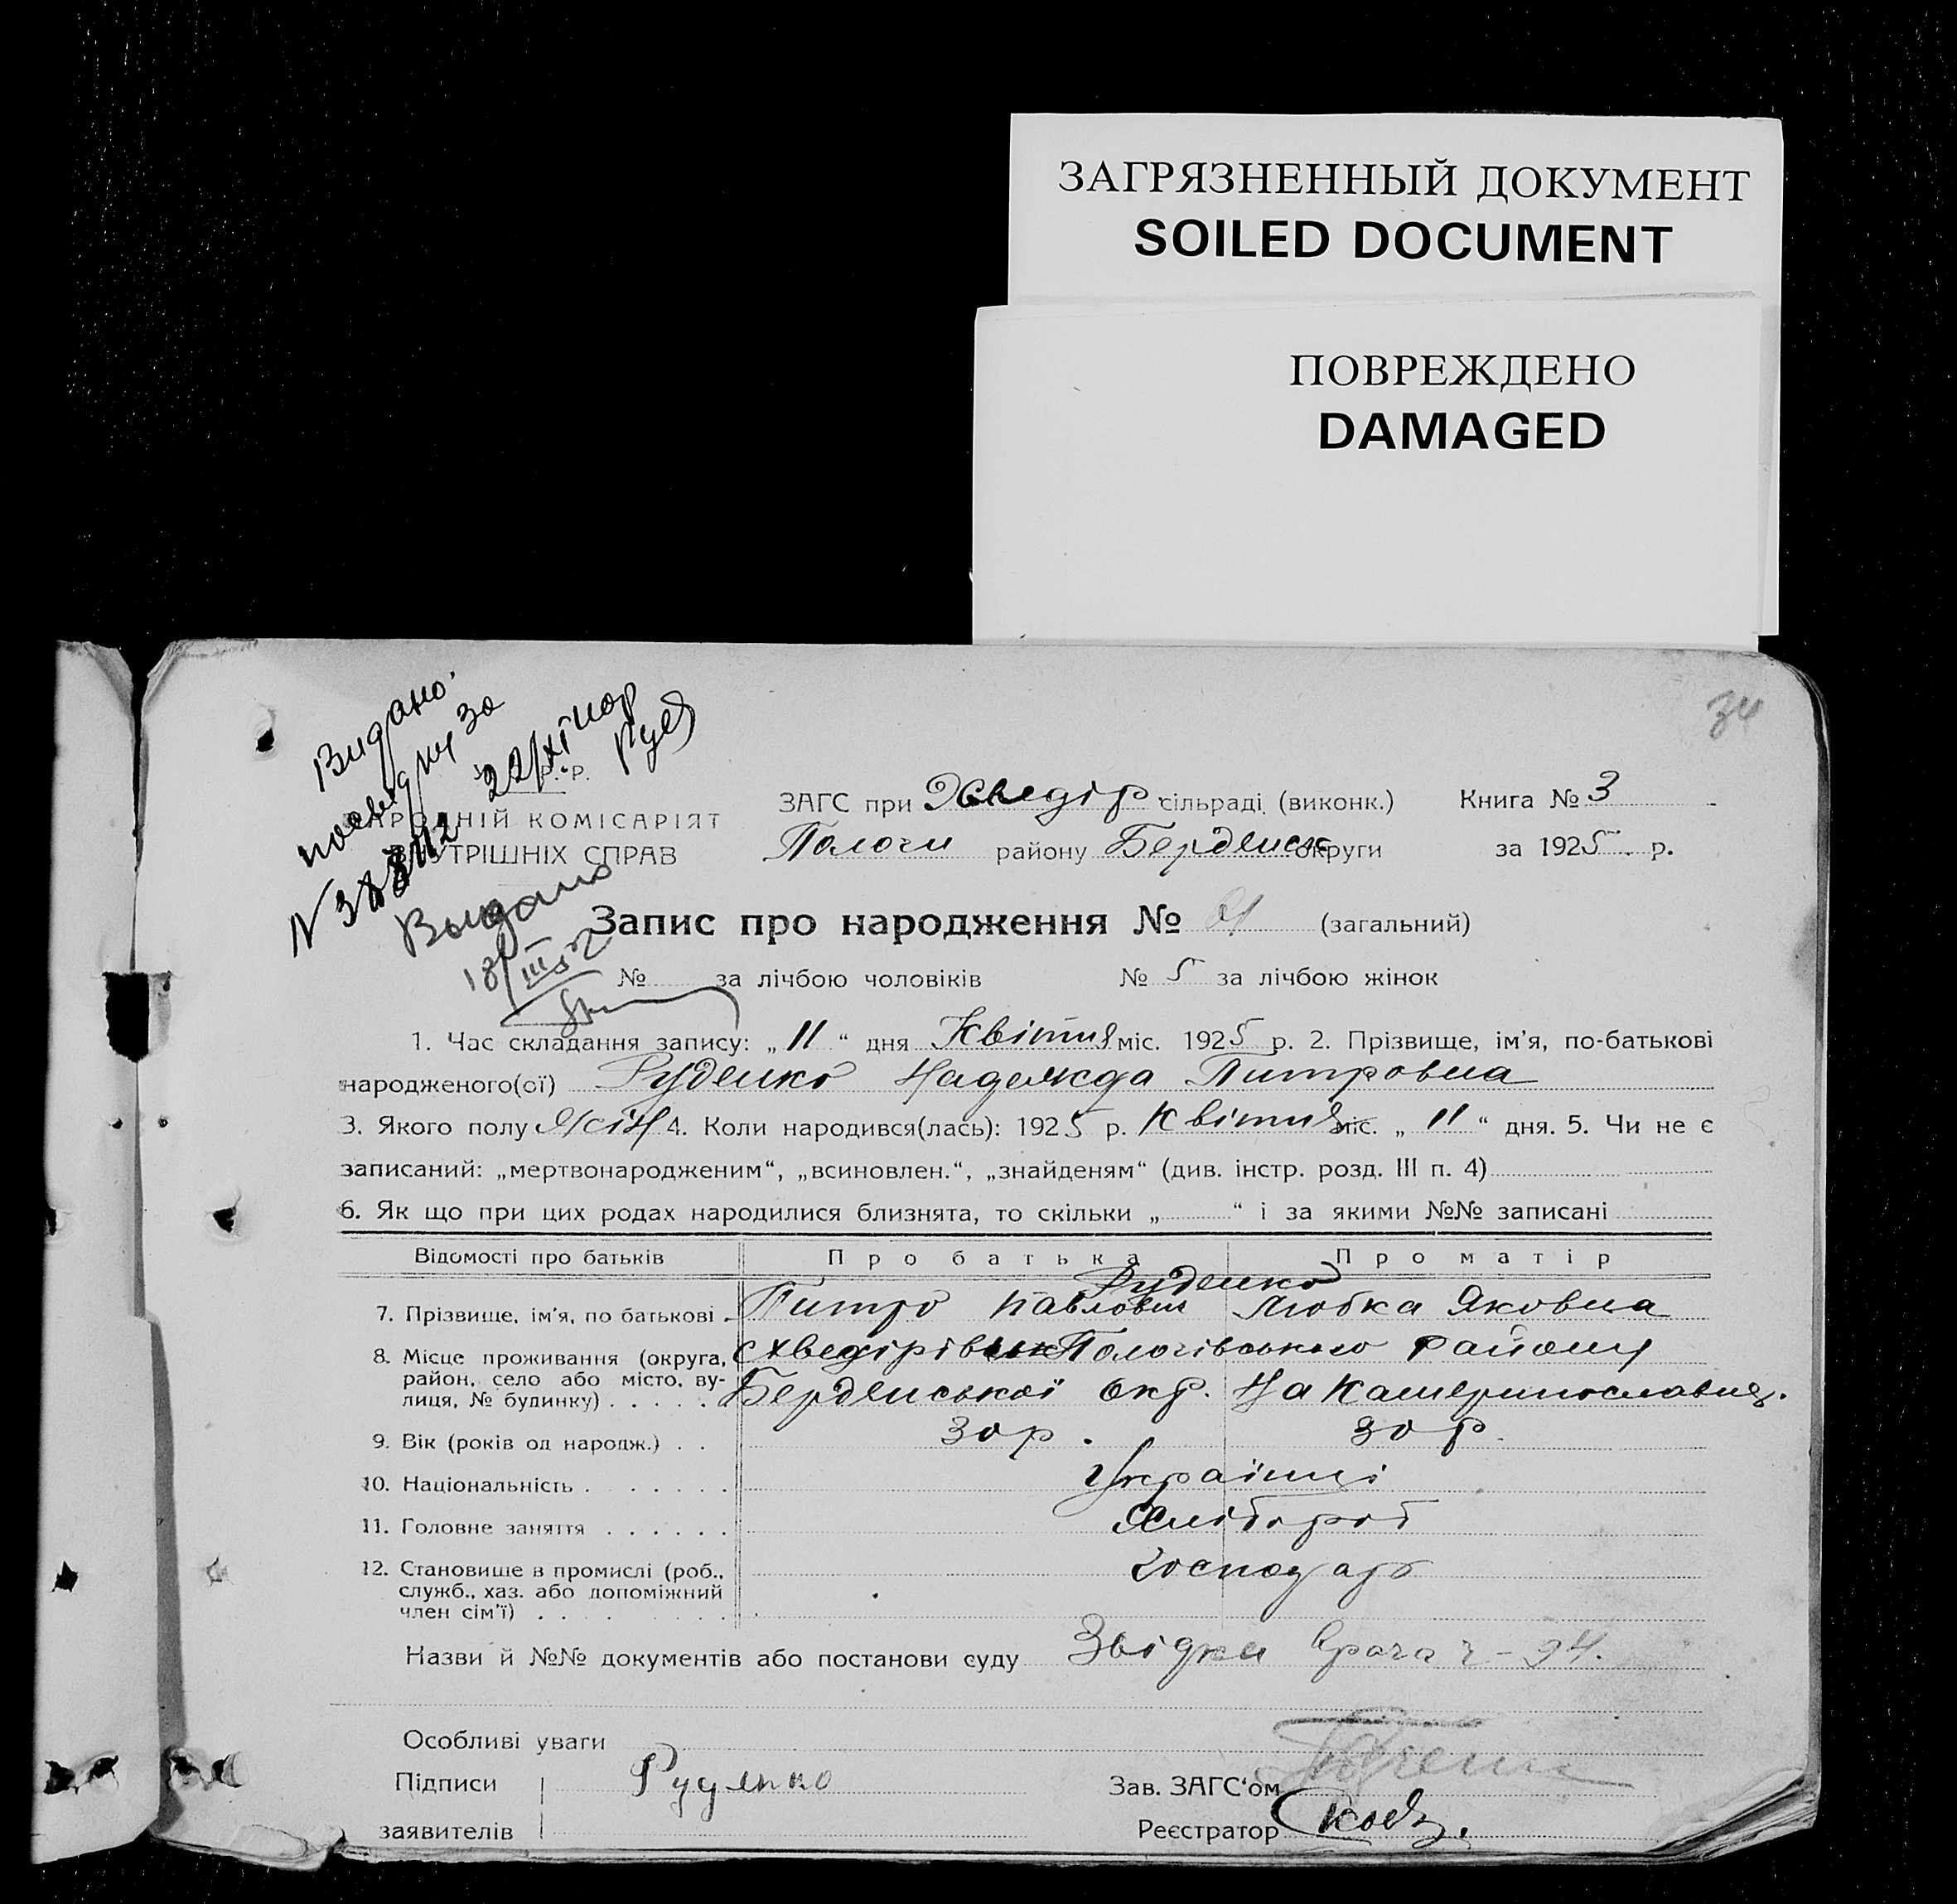 ЗАГРЯЗНЕННЫЙ ДОКУМЕНТ
SOILED DOCUMENT
ПОВРЕЖДЕНО
DAMAGED
34
Видано
за
22/XI
N
Р. Р.
НАРОДНІЙ КОМІСАРІЯТ
ВНУТРІШНІХ СПРАВ
Выдано
18/III 52
ЗАГС при Хведір сільраді (виконк.) Книга № 3
Пологи району Берденськ округи за 1925 р.
Запис про народження № (загальний)
№ за лічбою чоловіків № 5 за лічбою жінок
1. Час складання запису: „ 11 “ дня Квітня міс. 1925 р. 2. Прізвище, ім'я, по-батькові
народженого(ої) Руденко Надежда Питровна
3. Якого полу Жін 4. Коли народився(лась): 1925 р. Квітня міс. „ 11 “ дня. 5. Чи не є
записаний: „мертвонародженим“, „всиновлен.“, „знайденям“ (див. інстр. розд. III п. 4)
6. Як що при цих родах народилися близнята, то скільки „ “ і за якими №№ записані
Відомості про батьків Про батька Про матір
Руденко
7. Прізвище, ім'я, по батькові Питро Павлович Любка Яковна
8. Місце проживання (округа, с Хведірівка Пологівського Району
район, село або місто, ву-
лиця, № будинку) Берденської окр. На Катеринославщ.
9. Вік (років од народж.) 30 р. 30 р.
10. Національність Українці
11. Головне заняття Хлібороб
12. Становище в промислі (роб., Господарь
служб., хаз. або допоміжний
член сім'ї)
Назви й №№ документів або постанови суду Звідки
Особливі уваги
Підписи Руденко Зав. ЗАГС'ом
заявителів Реєстратор